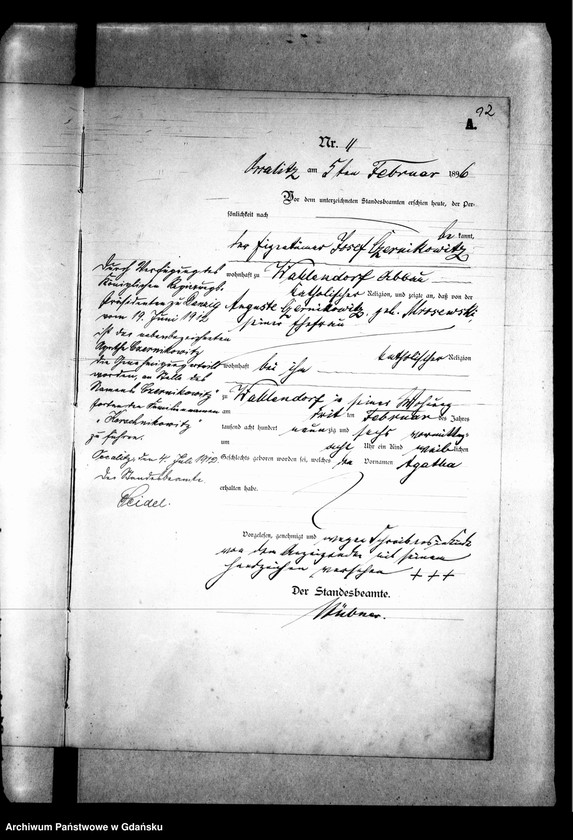 92
A.
Nr. 11
am 5ten Februar 1896
Vor dem unterzeichneten Standesbeamten erschien heute, der Per-
sönlichkeit nach
be kannt,
der Eigentümer Josef Czernikowitz
wohnhaft zu Wahlendorf Abbau
katholischer Religion, und zeigte an, daß von der
Auguste Czernikowitz, geb. Mrosewski,
seiner Ehefrau
katholischer Religion
wohnhaft bei ihm
zu Wahlendorf in seiner Wohnung
am ten Februar des Jahres
tausend acht hundert neunzig und sechs vormittags
um acht Uhr ein Kind weiblichen
Geschlechts geboren worden sei, welches den Vornamen Agatha
erhalten habe.
Vorgelesen, genehmigt und wegen Schreibensunkunde
von dem Anzeigenden mit seinem
Handzeichen versehen +++
Der Standesbeamte.
Hübner.
Durch Verfügung des
Königlichen Regierungs-
Präsidenten zu Danzig
vom 14. Juni 1912
ist der nebenbezeichneten
Agathe Czernikowitz
die Genehmigung erteilt
worden, an Stelle des
Namens "Czernikowitz"
fortan den Familiennamen
zu führen.
den 4. Juli 1912.
Der Standesbeamte
Seidel.
Archiwum Państwowe w Gdańsku